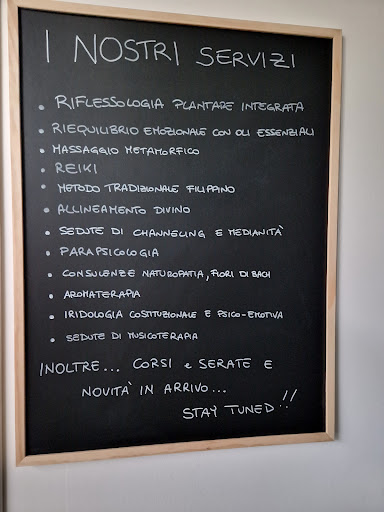 I NOSTRI SERVIZI
• RIFLESSOLOGIA PLANTARE INTEGRATA
• RIEQUILIBRIO EMOZIONALE CON OLI ESSENZIALI
• MASSAGGIO METAMORFICO
• REIKI
• METODO TRADIZIONALE FILIPPINO
• ALLINEAMENTO DIVINO
• SEDUTE DI CHANNELING E MEDIANITÀ
• PARAPSICOLOGIA
• CONSULENZE NATUROPATIA, FIORI DI BACH
• AROMATERAPIA
• IRIDOLOGIA COSTITUZIONALE E PSICO-EMOTIVA
• SEDUTE DI MUSICOTERAPIA
INOLTRE... CORSI e SERATE E
NOVITÀ IN ARRIVO...
STAY TUNED!!